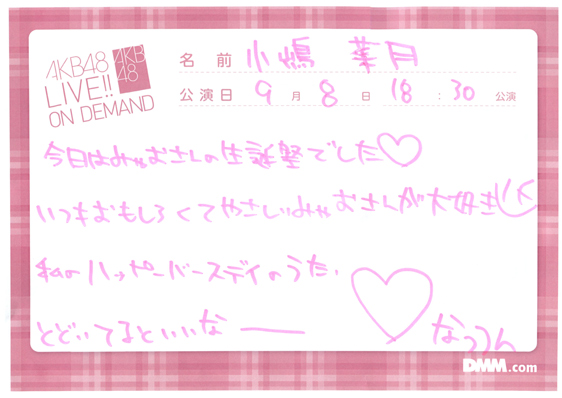 AKB48
LIVE!!
ON DEMAND
AKB
48
名前 小嶋 菜月
公演日 9月8日 18:30 公演
今日はみゃおさんの生誕祭でした♡
いつもおもしろくてやさしいみゃおさんが大好き
私のハッピーバースデイのうた、
とどいてるといいなー
なつつん
DMM.com